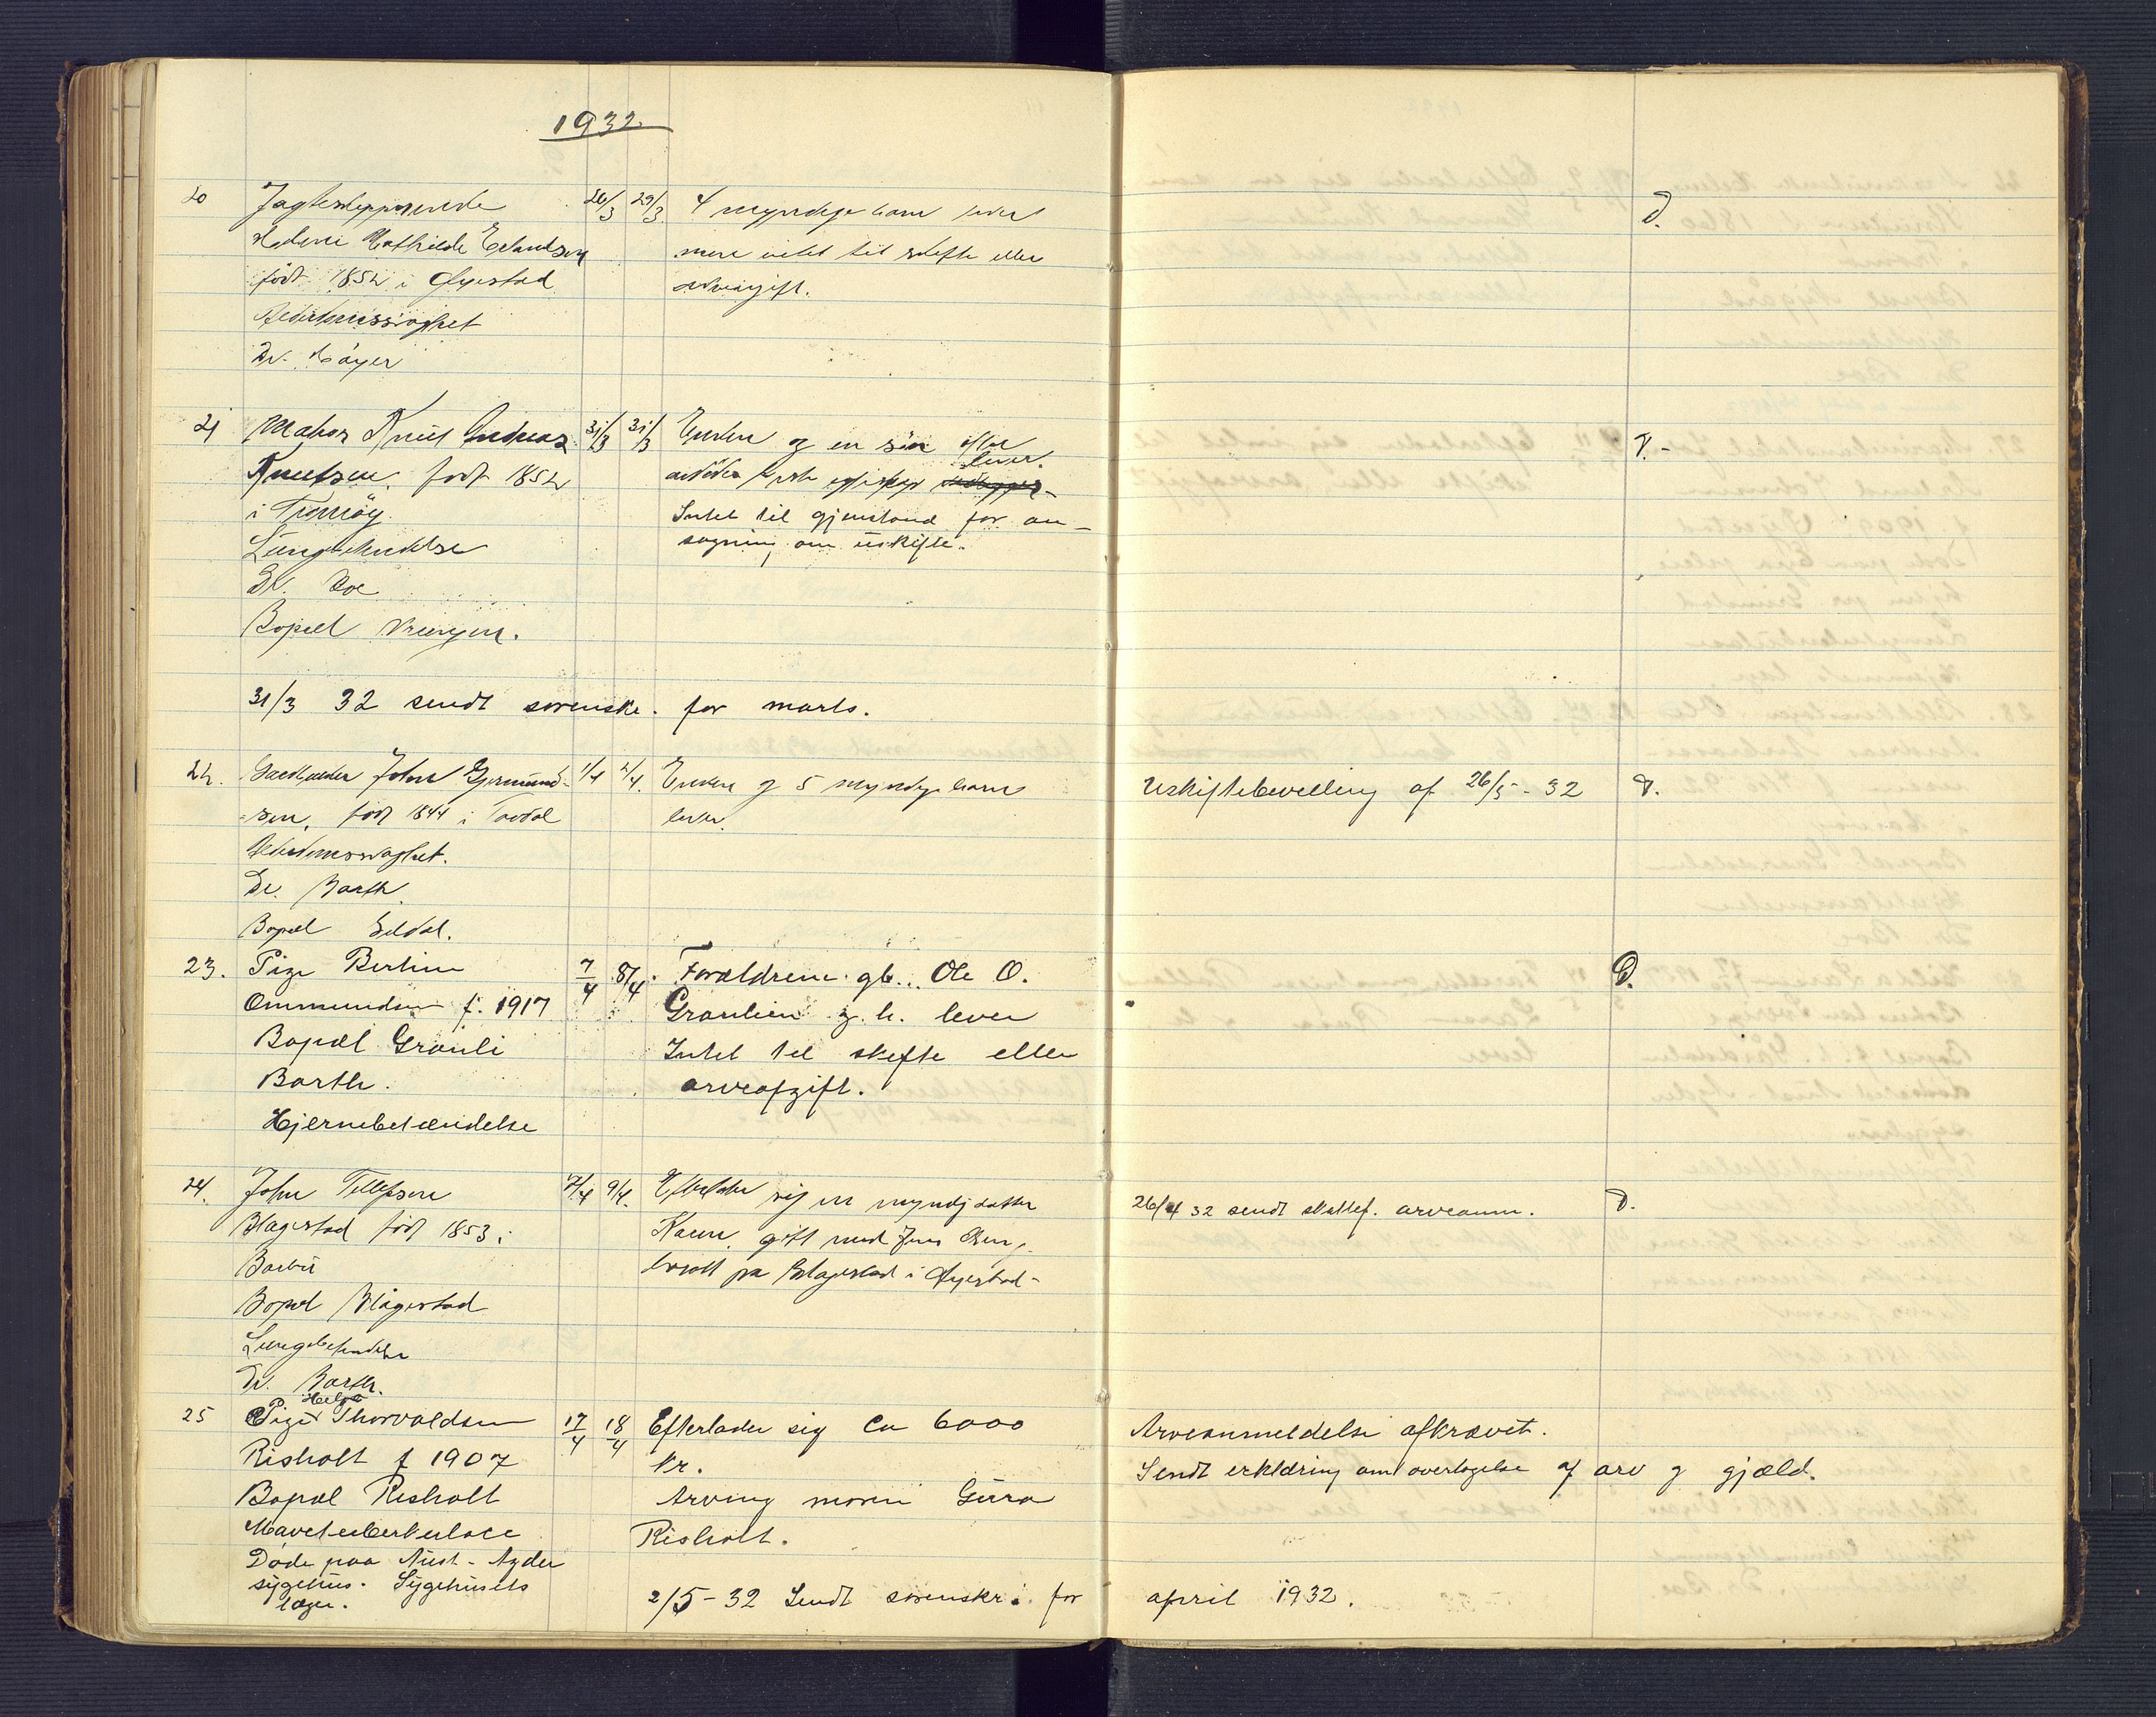 1932.
20 26/3 29/3 4 myndige barn lever D.
Mathilde Erlandsen mere intet til skifte eller
født 1852 i Øyestad arveavgift.
Alderdomssvaghet
Dr.
21 Matros Knut Andreas 31/3 31/3 Enken og en søn efter D.-
Knutsen. født 1852 lever.
i Tromøy. Intet til gjenstand for an-
Lungebetendelse søgning om uskifte.
Dr. Boe
Bopæl Vrengen.
31/3 32 sendt sorenskr. for marts.
22. Gaardbruker John Gjermund- 1/4 2/4. Enken og 5 myndige barn Uskiftebevilling af 26/5 - 32 D.
-sen, født 1844 i Tovdal lever.
Alderdomssvaghet.
Dr. Barth.
Bopæl
23. Pige Bertine 7/4 8/4. Forældrene gb. Ole O. D.
Ommundsen f. 1917 Graulien g. h. lever
Bopæl Grauli Intet til skifte eller
Barth. arveafgift.
Hjernebetændelse
24. John Tellefsen 7/4 9/4. Efterlater sig en myndig datter 26/4 32 sendt skattef. arveanm. D.
Blagestad født 1853 i gift med Jens
Barbu bosatt på Blagestad i Øyestad-
Bopæl Blagestad
Lungebetendelse
Dr. Barth.
25 Pige Helga Thorvaldsen 17/4 18/4 Efterlader sig Ca 6000 Arveanmeldelse afkrævet.
Risholt f 1907 kr. Sendt erklæring om overtagelse af arv g gjæld.
Bopæl Risholt Arving moren Gura
Mavetuberkulose Risholt.
Døde paa Aust-Agder
sygehus. Sygehusets
læge. 2/5 - 32 Sendt sorenskr. for april 1932.